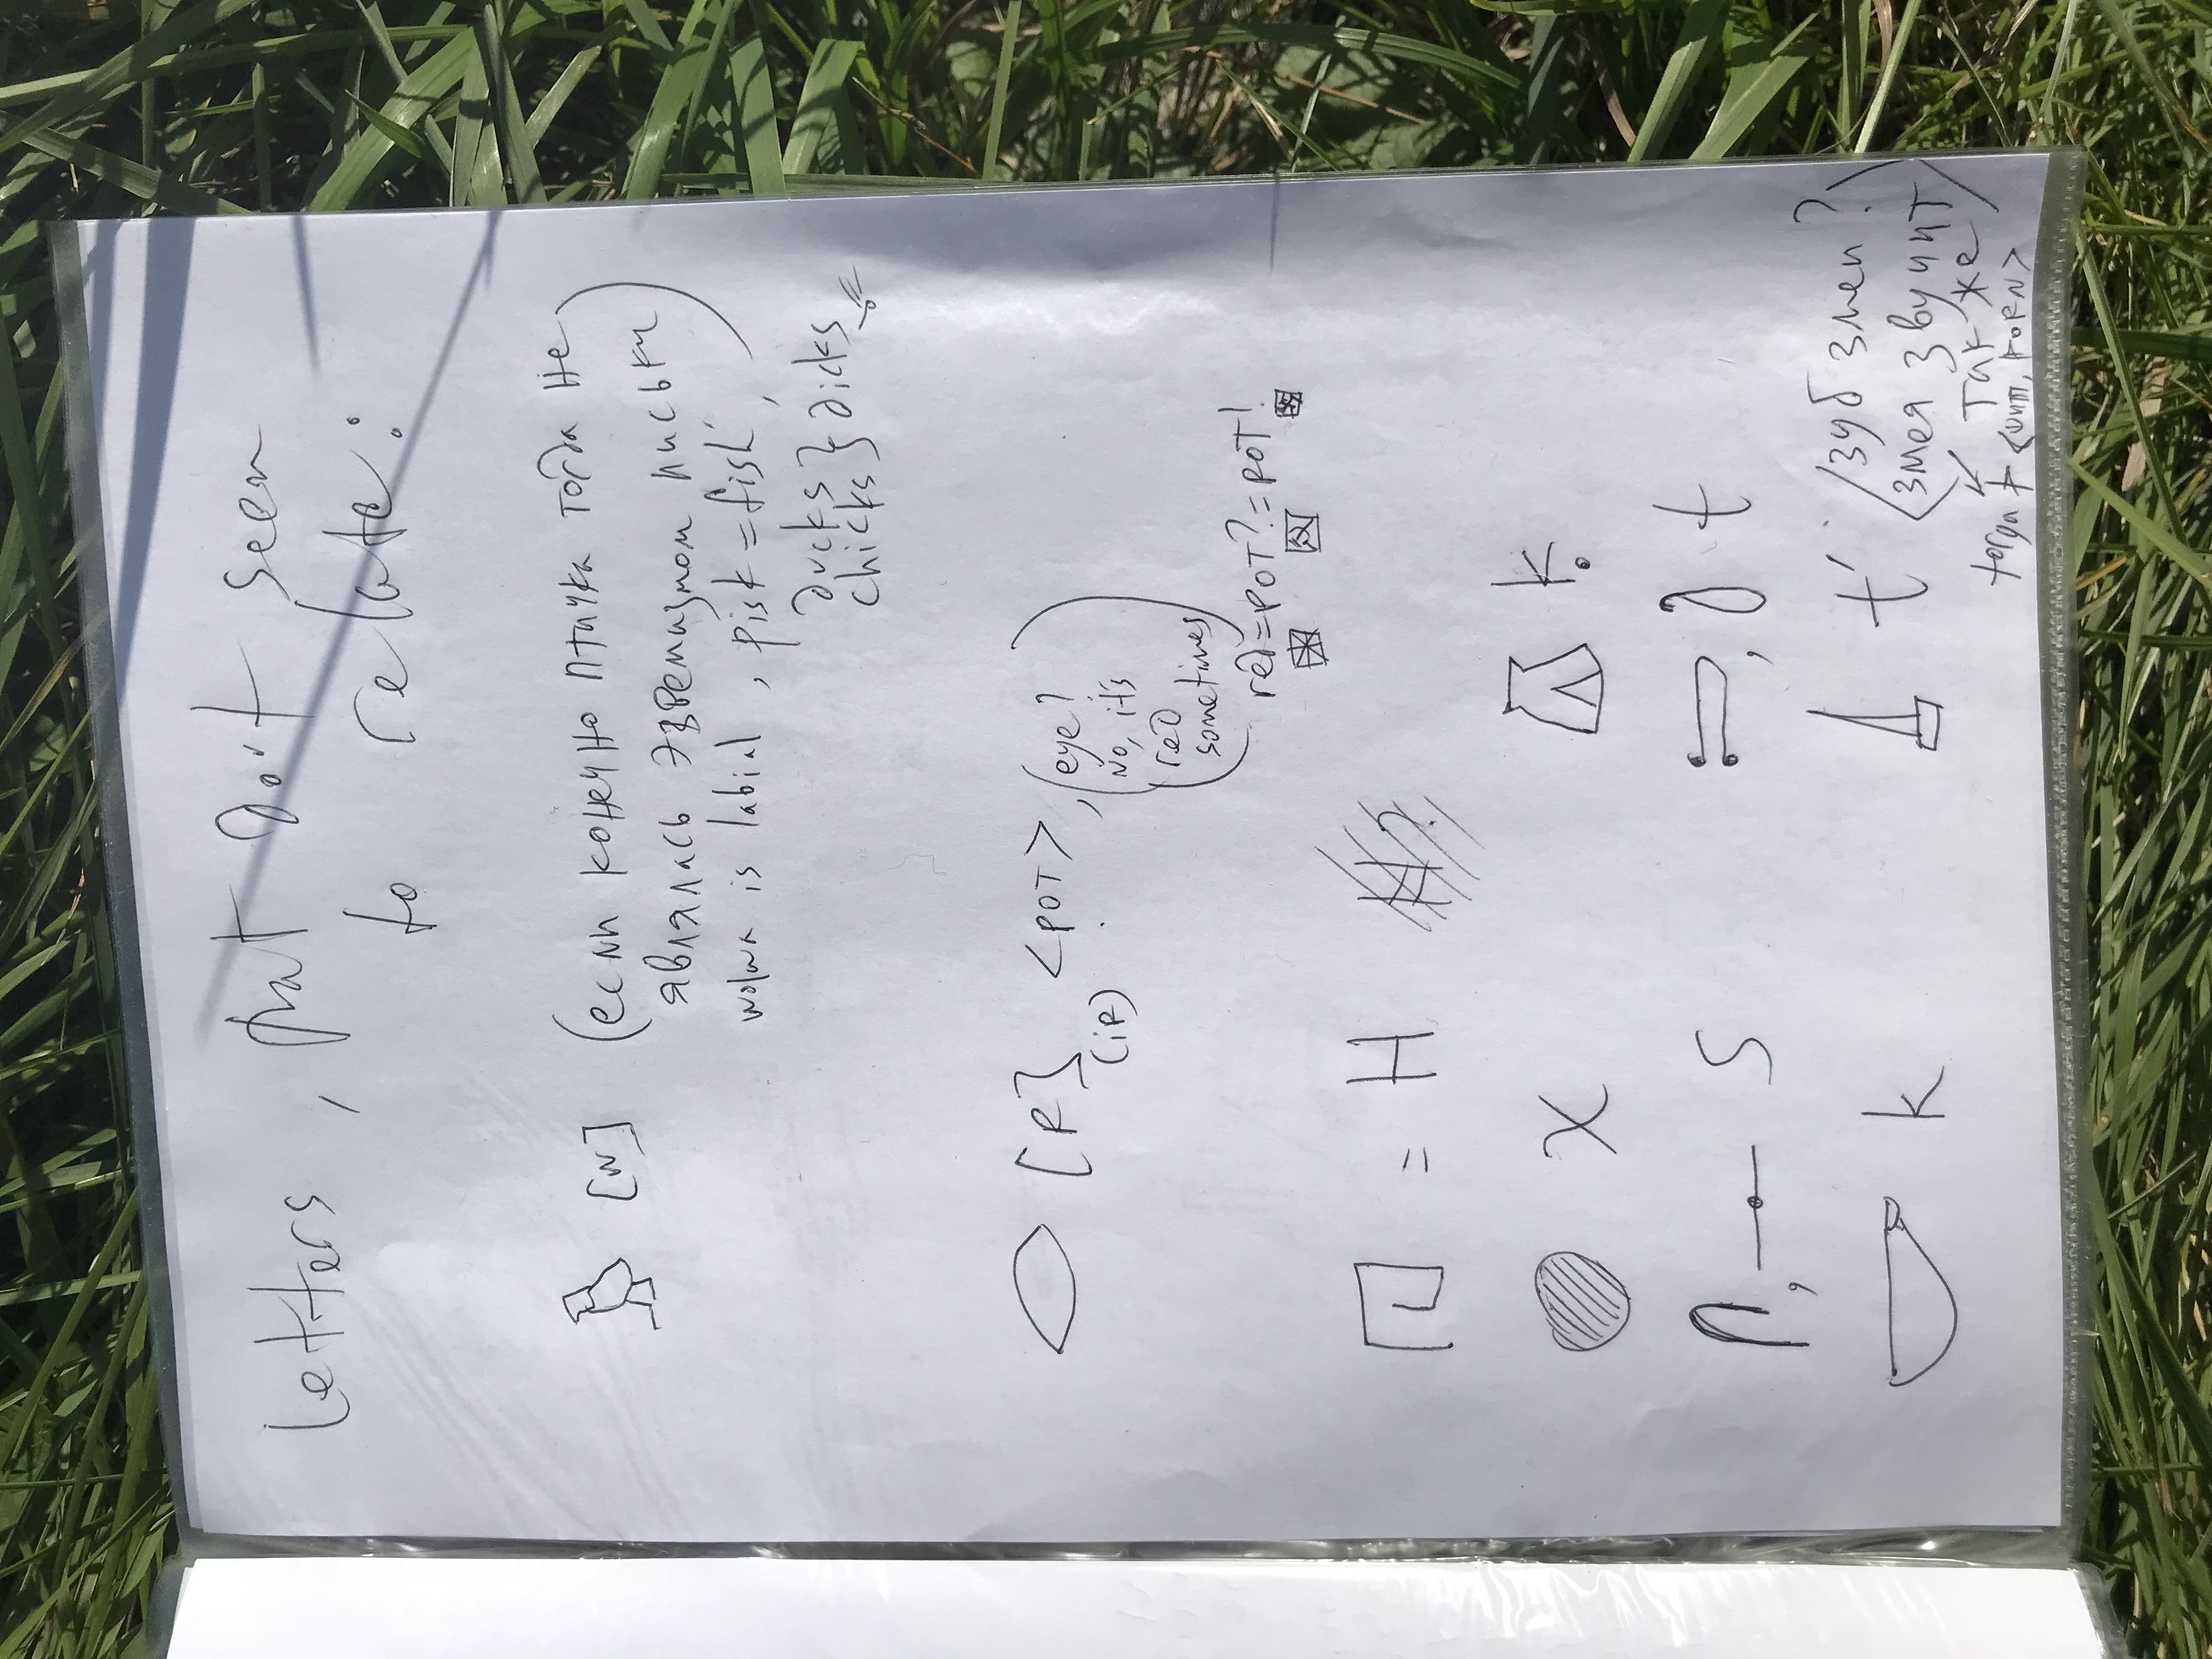 Letters, that don't seem
to relate:
[w] (если конечно птичка тогда не
являлась эвфемизмом письки
is labial, pisk = fish,
ducks } dicks
chicks
[R] <рот>, (eye?
(iR) no, it's
red
sometimes)
red=рот?=ROT!
= H
χ ḳ
, S , t
k t' (зуб змеи?
змея звучит
так же)
тогда <шип, >